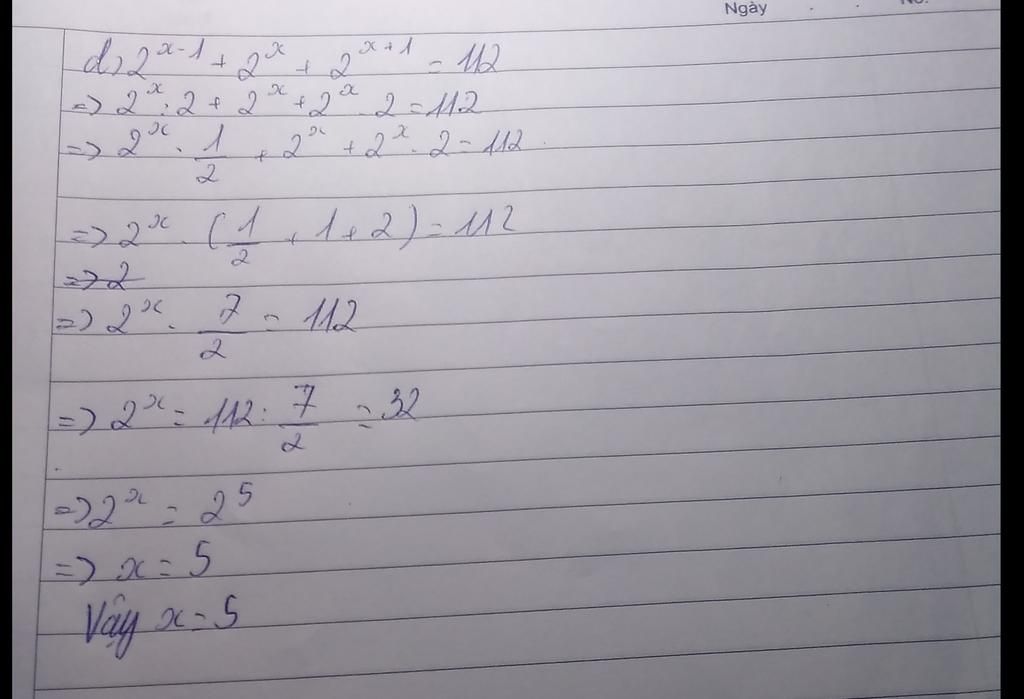 Ngày
No.
d) 2^{x-1} + 2^x + 2^{x+1} = 112
=> 2^x : 2 + 2^x + 2^x . 2 = 112
=> 2^x . 1/2 + 2^x + 2^x . 2 = 112
=> 2^x . (1/2 + 1 + 2) = 112
=> 2
=> 2^x . 7/2 = 112
=> 2^x = 112 : 7/2 = 32
=> 2^x = 2^5
=> x = 5
Vậy x = 5